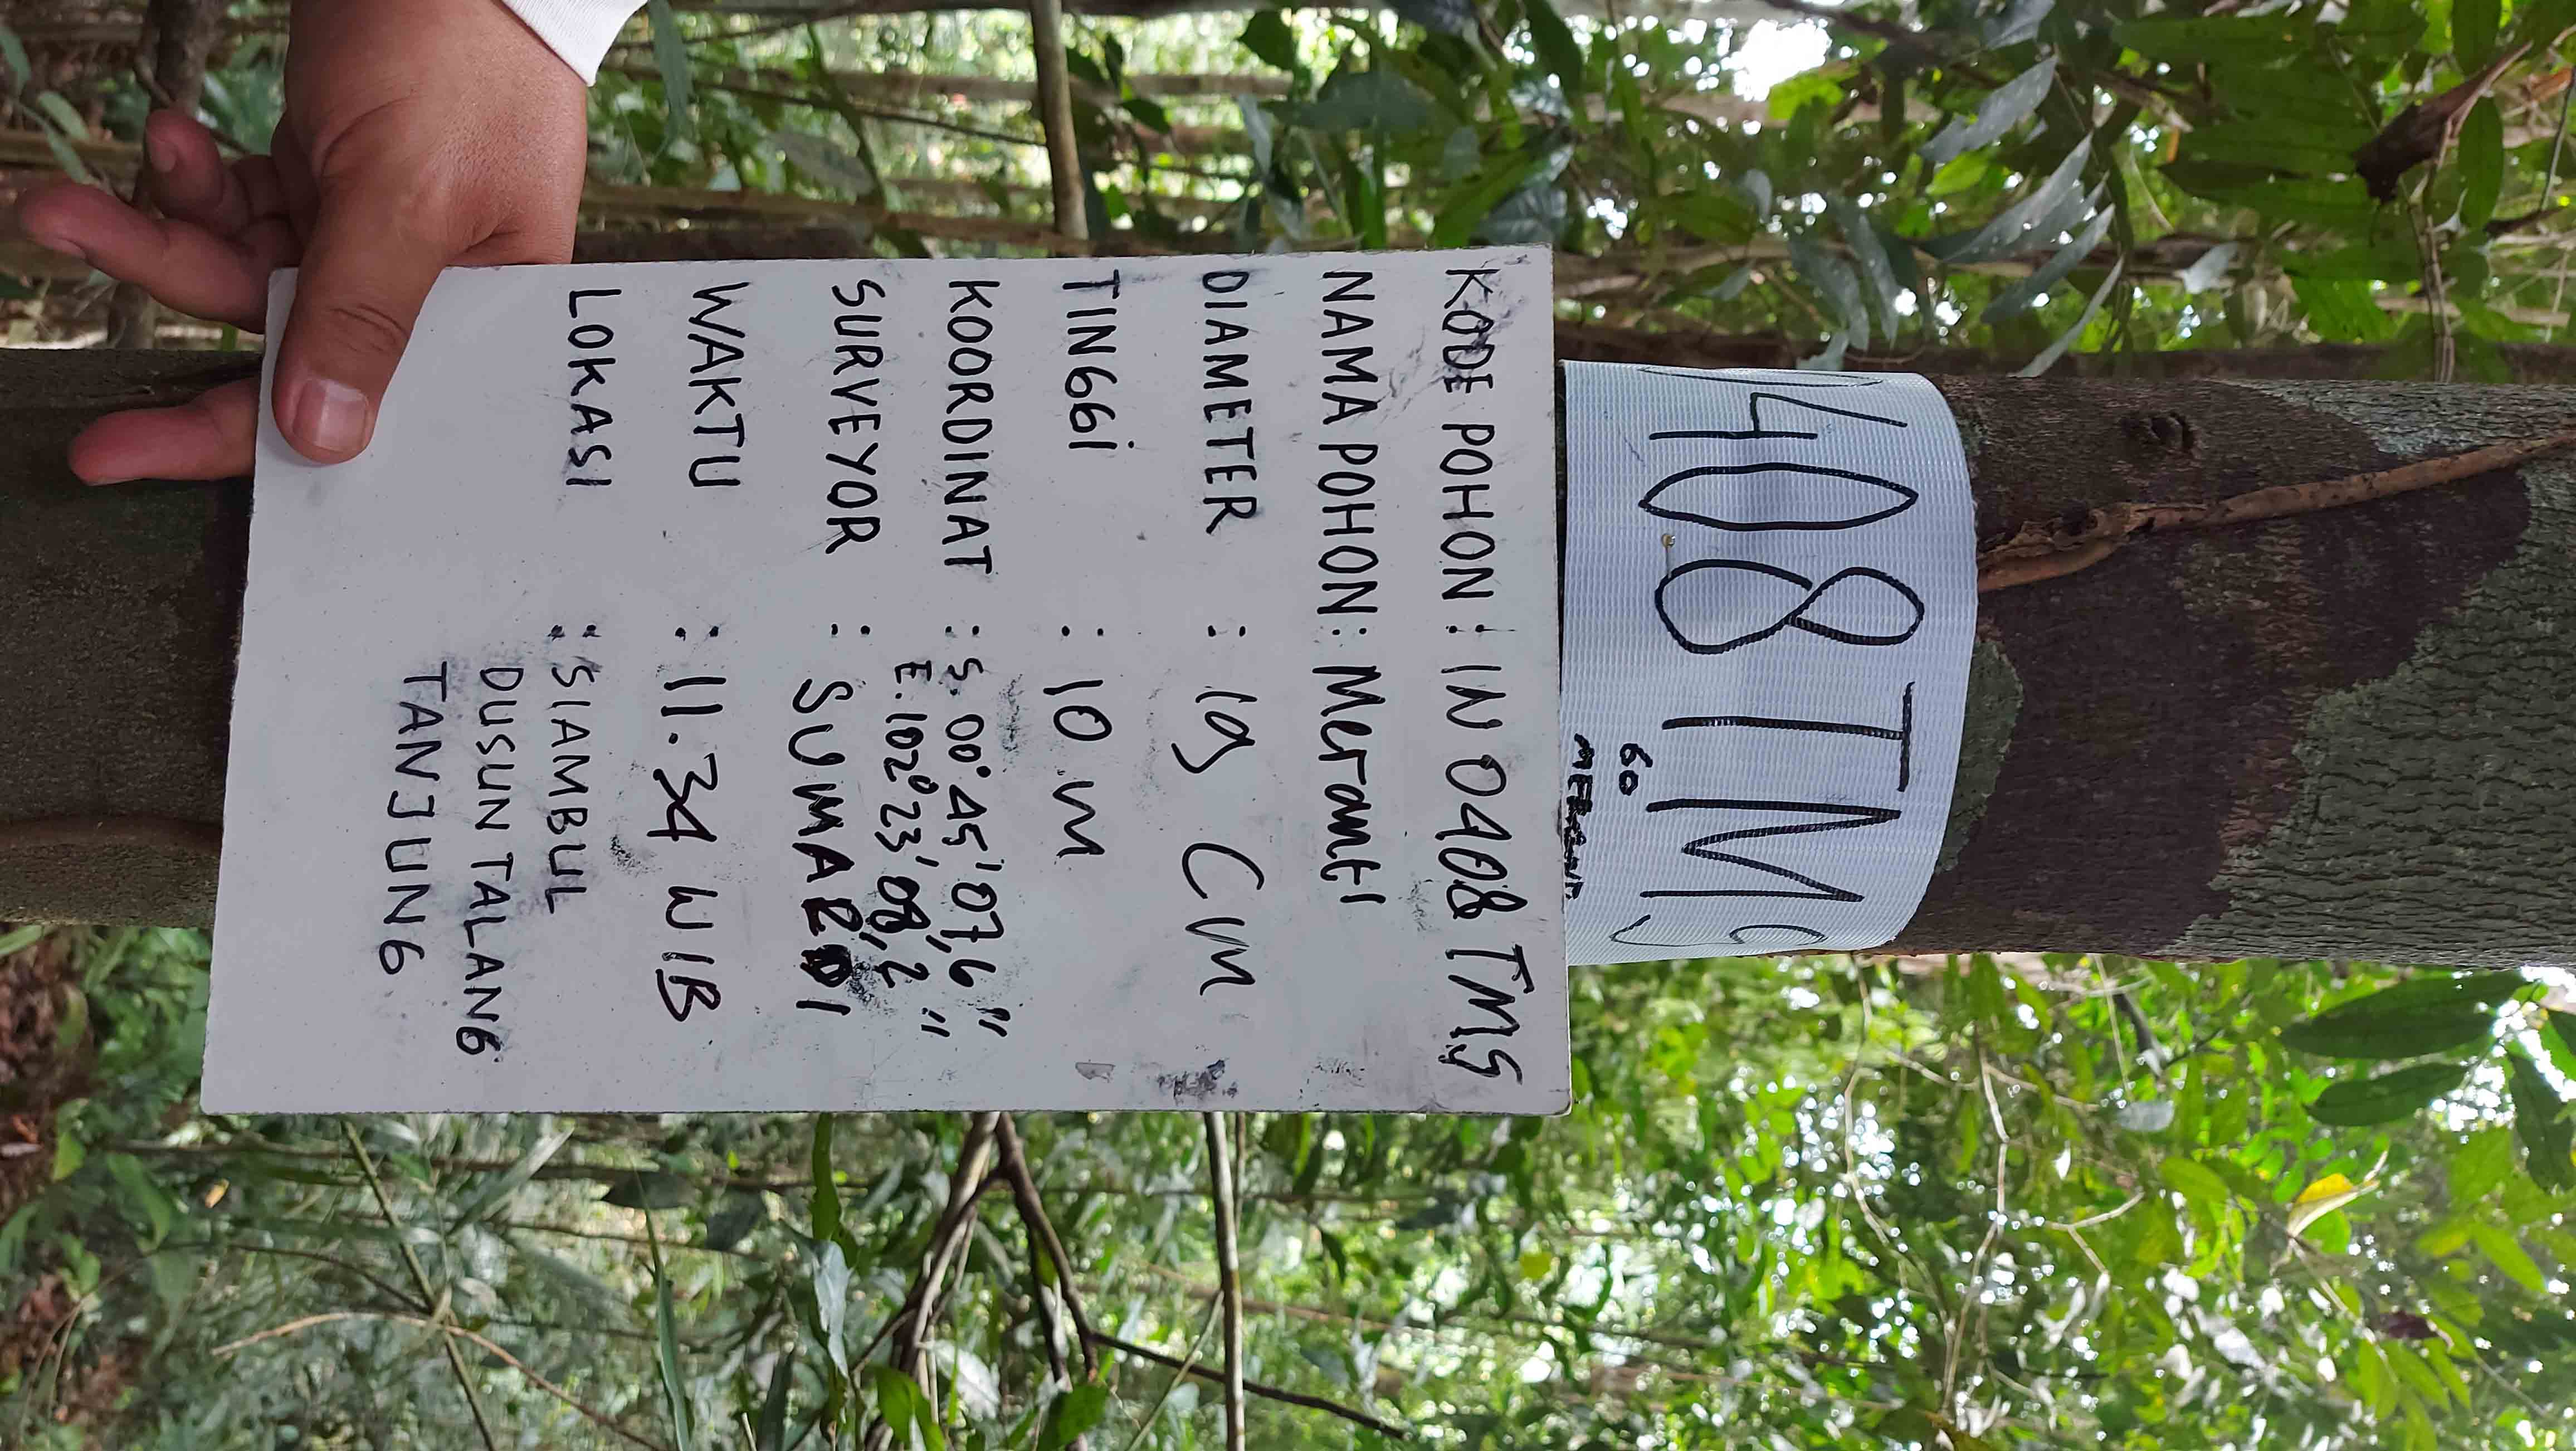 0408TMS
60
MERANTI
KODE POHON : IN 0408 TMS
NAMA POHON : Meranti
DIAMETER : 19 cm
TINGGI : 10 m
KOORDINAT : S. 00° 45' 07,6"
E. 102° 23' 08,2"
SURVEYOR : SUMARDI
WAKTU : 11.34 WIB
LOKASI : SIAMBUL
DUSUN TALANG
TANJUNG